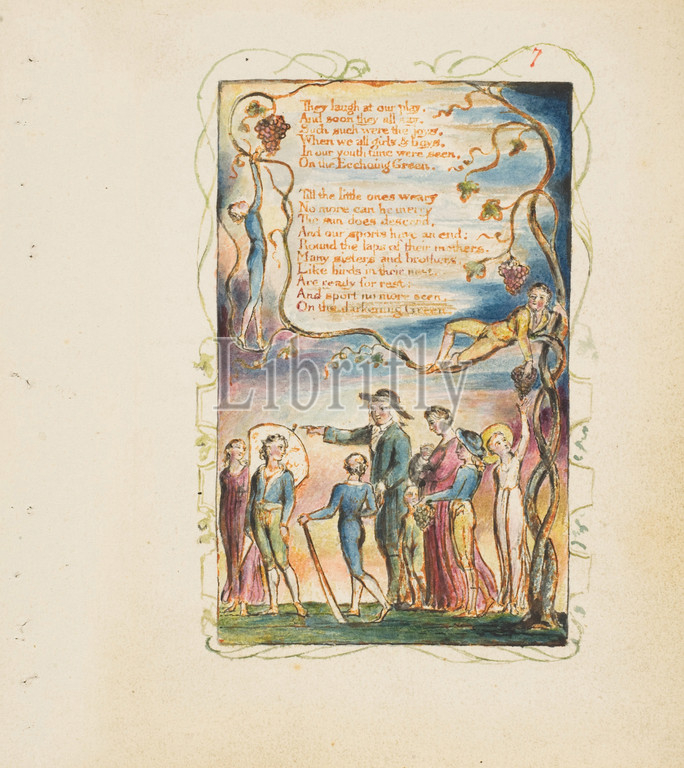 7
They laugh at our play,
And soon they all say.
Such such were the joys.
When we all girls & boys,
In our youth-time were seen,
On the Ecchoing Green.
Till the little ones weary
No more can be merry
The sun does descend,
And our sports have an end:
Round the laps of their mothers,
Many sisters and brothers,
Like birds in their nest,
Are ready for rest;
And sport no more seen,
On the darkening Green.
Librifly